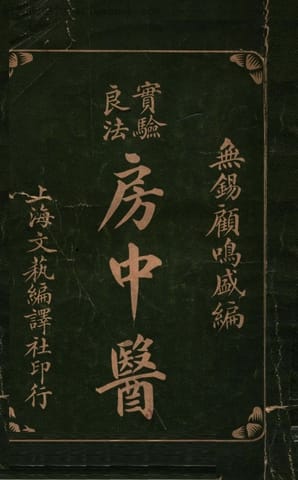 無錫顧鳴盛編
實驗
良法
房中醫
上海文藝編譯社印行